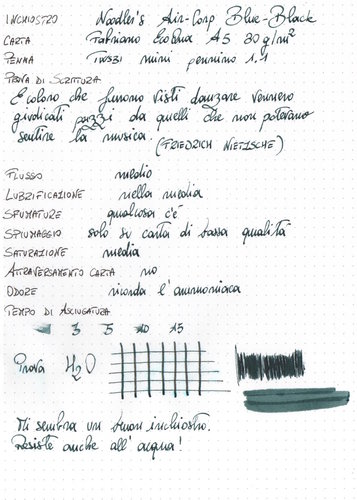 INCHIOSTRO Noodler's Air-Corp Blue-Black
CARTA Fabriano EcoQua A5 80 g/m²
PENNA TWSBI mini pennino 1.1
PROVA DI SCRITTURA
E coloro che furono visti danzare vennero
giudicati pazzi da quelli che non potevano
sentire la musica.
(FRIEDRICH NIETZSCHE)
FLUSSO medio
LUBRIFICAZIONE nella media
SFUMATURE qualcosa c'è
SPIUMAGGIO solo su carta di bassa qualità
SATURAZIONE media
ATTRAVERSAMENTO CARTA no
ODORE ricorda l'ammoniaca
TEMPO DI ASCIUGATURA
3 5 10 15
Prova H₂O
Mi sembra un buon inchiostro.
Resiste anche all'acqua!